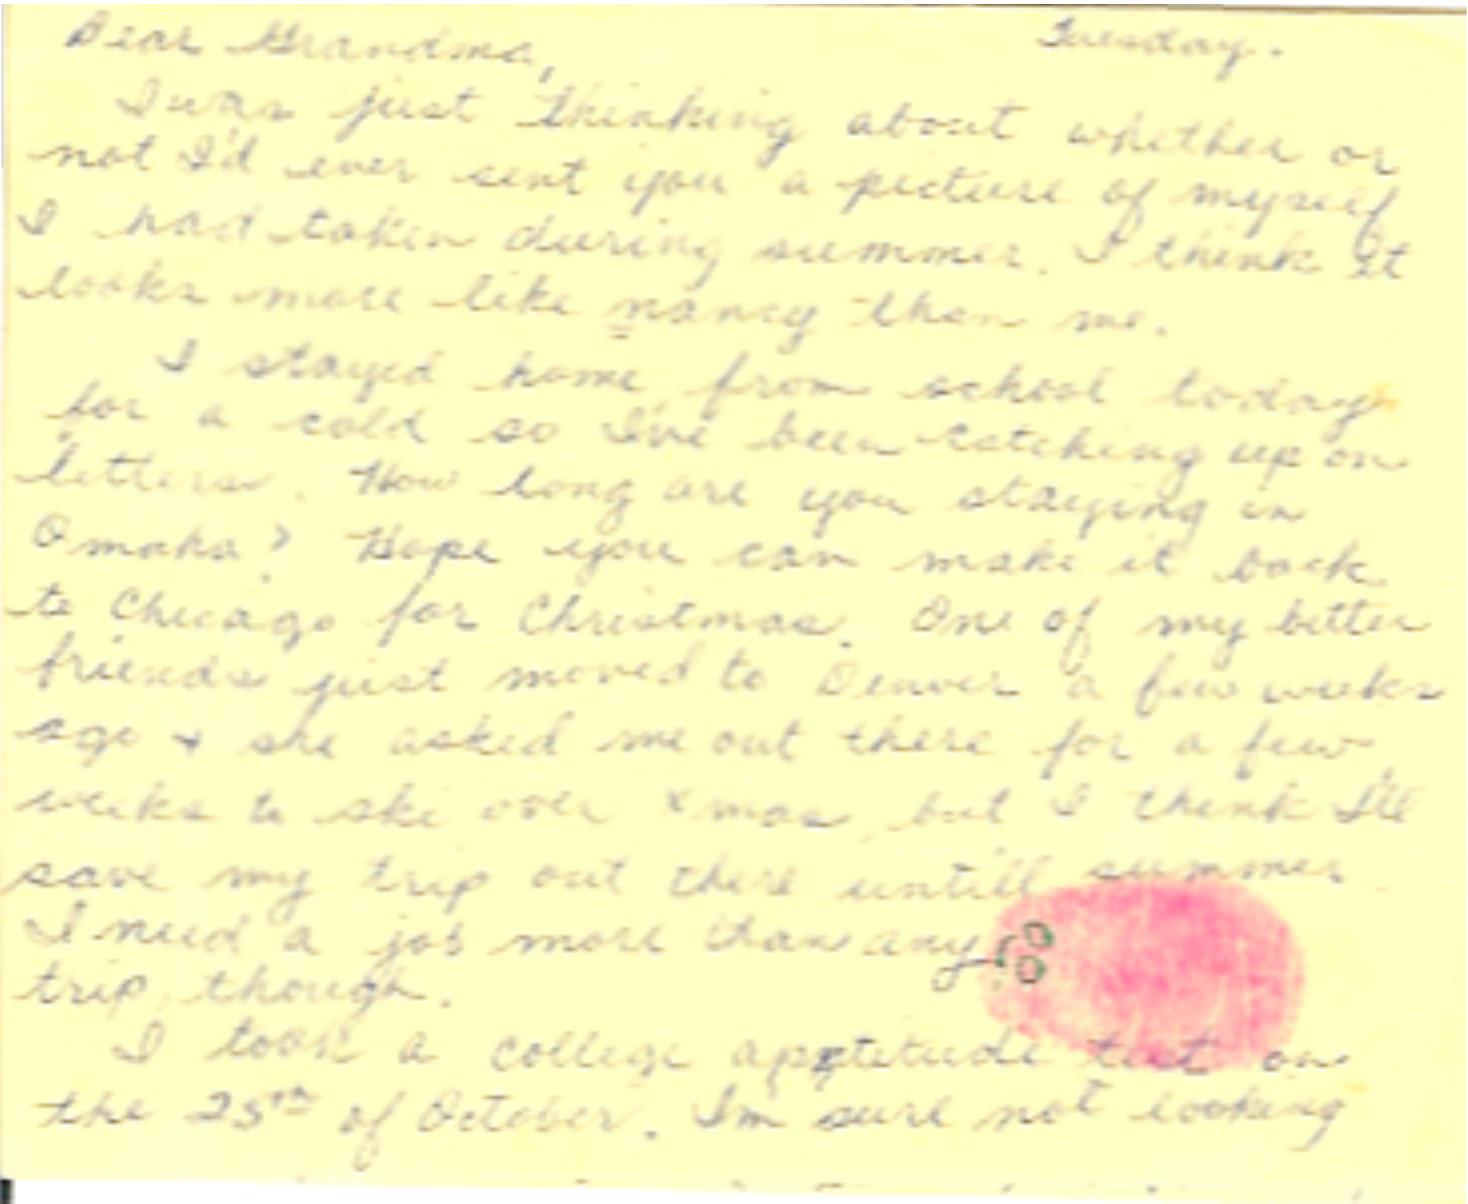 Dear Grandma, Tuesday.
I was just thinking about whether or
not I'd ever sent you a picture of myself
I had taken during summer. I think it
looks more like nancy than me.
I stayed home from school today
for a cold so I've been catching up on
letters. How long are you staying in
Omaha? Hope you can make it back
to Chicago for Christmas. One of my better
friends just moved to Denver a few weeks
ago + she asked me out there for a few
weeks to ski over xmas, but I think I'll
save my trip out there untill summer.
I need a job more than any
trip, though.
I took a college aptitude test on
the 25th of October. I'm sure not looking